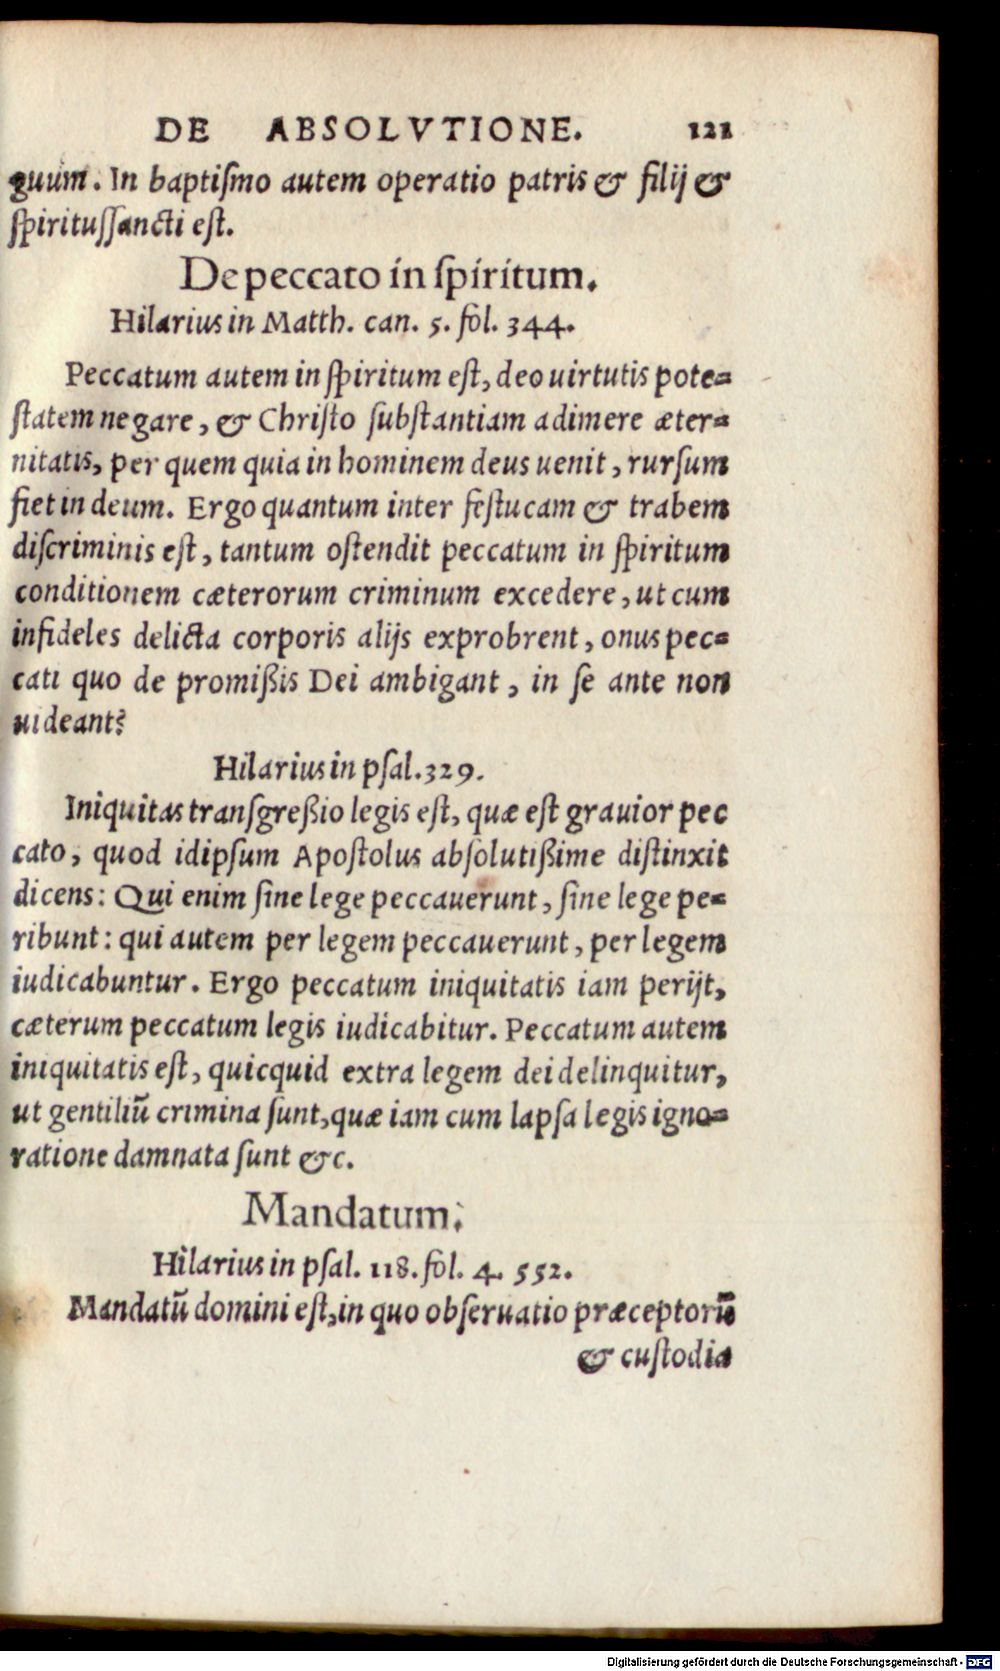 DE ABSOLVTIONE. 121
guum. In baptiſmo autem operatio patris & filij &
ſpirituſſancti eſt.
De peccato in ſpiritum.
Hilarius in Matth. can. 5. fol. 344.
Peccatum autem in ſpiritum eſt, deo uirtutis pote=
ſtatem negare, & Chriſto ſubſtantiam adimere æter=
nitatis, per quem quia in hominem deus uenit, rurſum
fiet in deum. Ergo quantum inter feſtucam & trabem
diſcriminis eſt, tantum oſtendit peccatum in ſpiritum
conditionem cæterorum criminum excedere, ut cum
infideles delicta corporis alijs exprobrent, onus pec=
cati quo de promißis Dei ambigant, in ſe ante non
uideant?
Hilarius in pſal. 329.
Iniquitas tranſgreßio legis eſt, quæ eſt grauior pec
cato, quod idipſum Apoſtolus abſolutißime diſtinxit
dicens: Qui enim ſine lege peccauerunt, ſine lege pe=
ribunt: qui autem per legem peccauerunt, per legem
iudicabuntur. Ergo peccatum iniquitatis iam perijt,
cæterum peccatum legis iudicabitur. Peccatum autem
iniquitatis eſt, quicquid extra legem dei delinquitur,
ut gentiliū crimina ſunt, quæ iam cum lapſa legis igno=
ratione damnata ſunt &c.
Mandatum.
Hilarius in pſal. 118. fol. 4. 552.
Mandatū domini eſt, in quo obſeruatio præceptorū
& cuſtodia
Digitalisierung gefördert durch die Deutsche Forschungsgemeinschaft - DFG